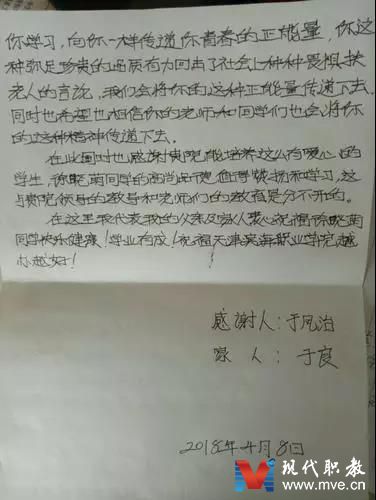 你学习，向你一样传递你青春的正能量，你这
种弥足珍贵的品质有力回击了社会上种种畏惧扶
老人的言论，我们会将你的这种正能量传递下去
同时也希望也相信你的老师和同学们也会将你
的这种精神传递下去。
在此同时也感谢贵院能培养这么有爱心的
学生，你晓萌同学的高尚品德值得颂扬和学习，这
与贵院领导的教导和老师们的教育是分不开的。
在这里我代表我的父亲及家人衷心祝福你晓萌
同学快乐健康！学业有成！祝福天津滨海职业学院越
办越好！
感谢人：于凤治
家人：于良
2018年4月8日
现代职教
www.mve.cn